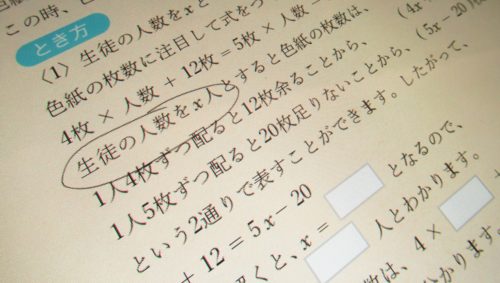 この時、色
とき方
〈1〉生徒の人数をxと
色紙の枚数に注目して式をつ
4枚 × 人数 + 12枚 = 5枚 × 人数 −
生徒の人数をx人とすると色紙の枚数は、
1人4枚ずつ配ると12枚余ることから、 (4x +
1人5枚ずつ配ると20枚足りないことから、 (5x − 20)
という2通りで表すことができます。したがって、
+ 12 = 5x − 20
くと、x = となるので、
人とわかります。
数は、4 × +
かります。